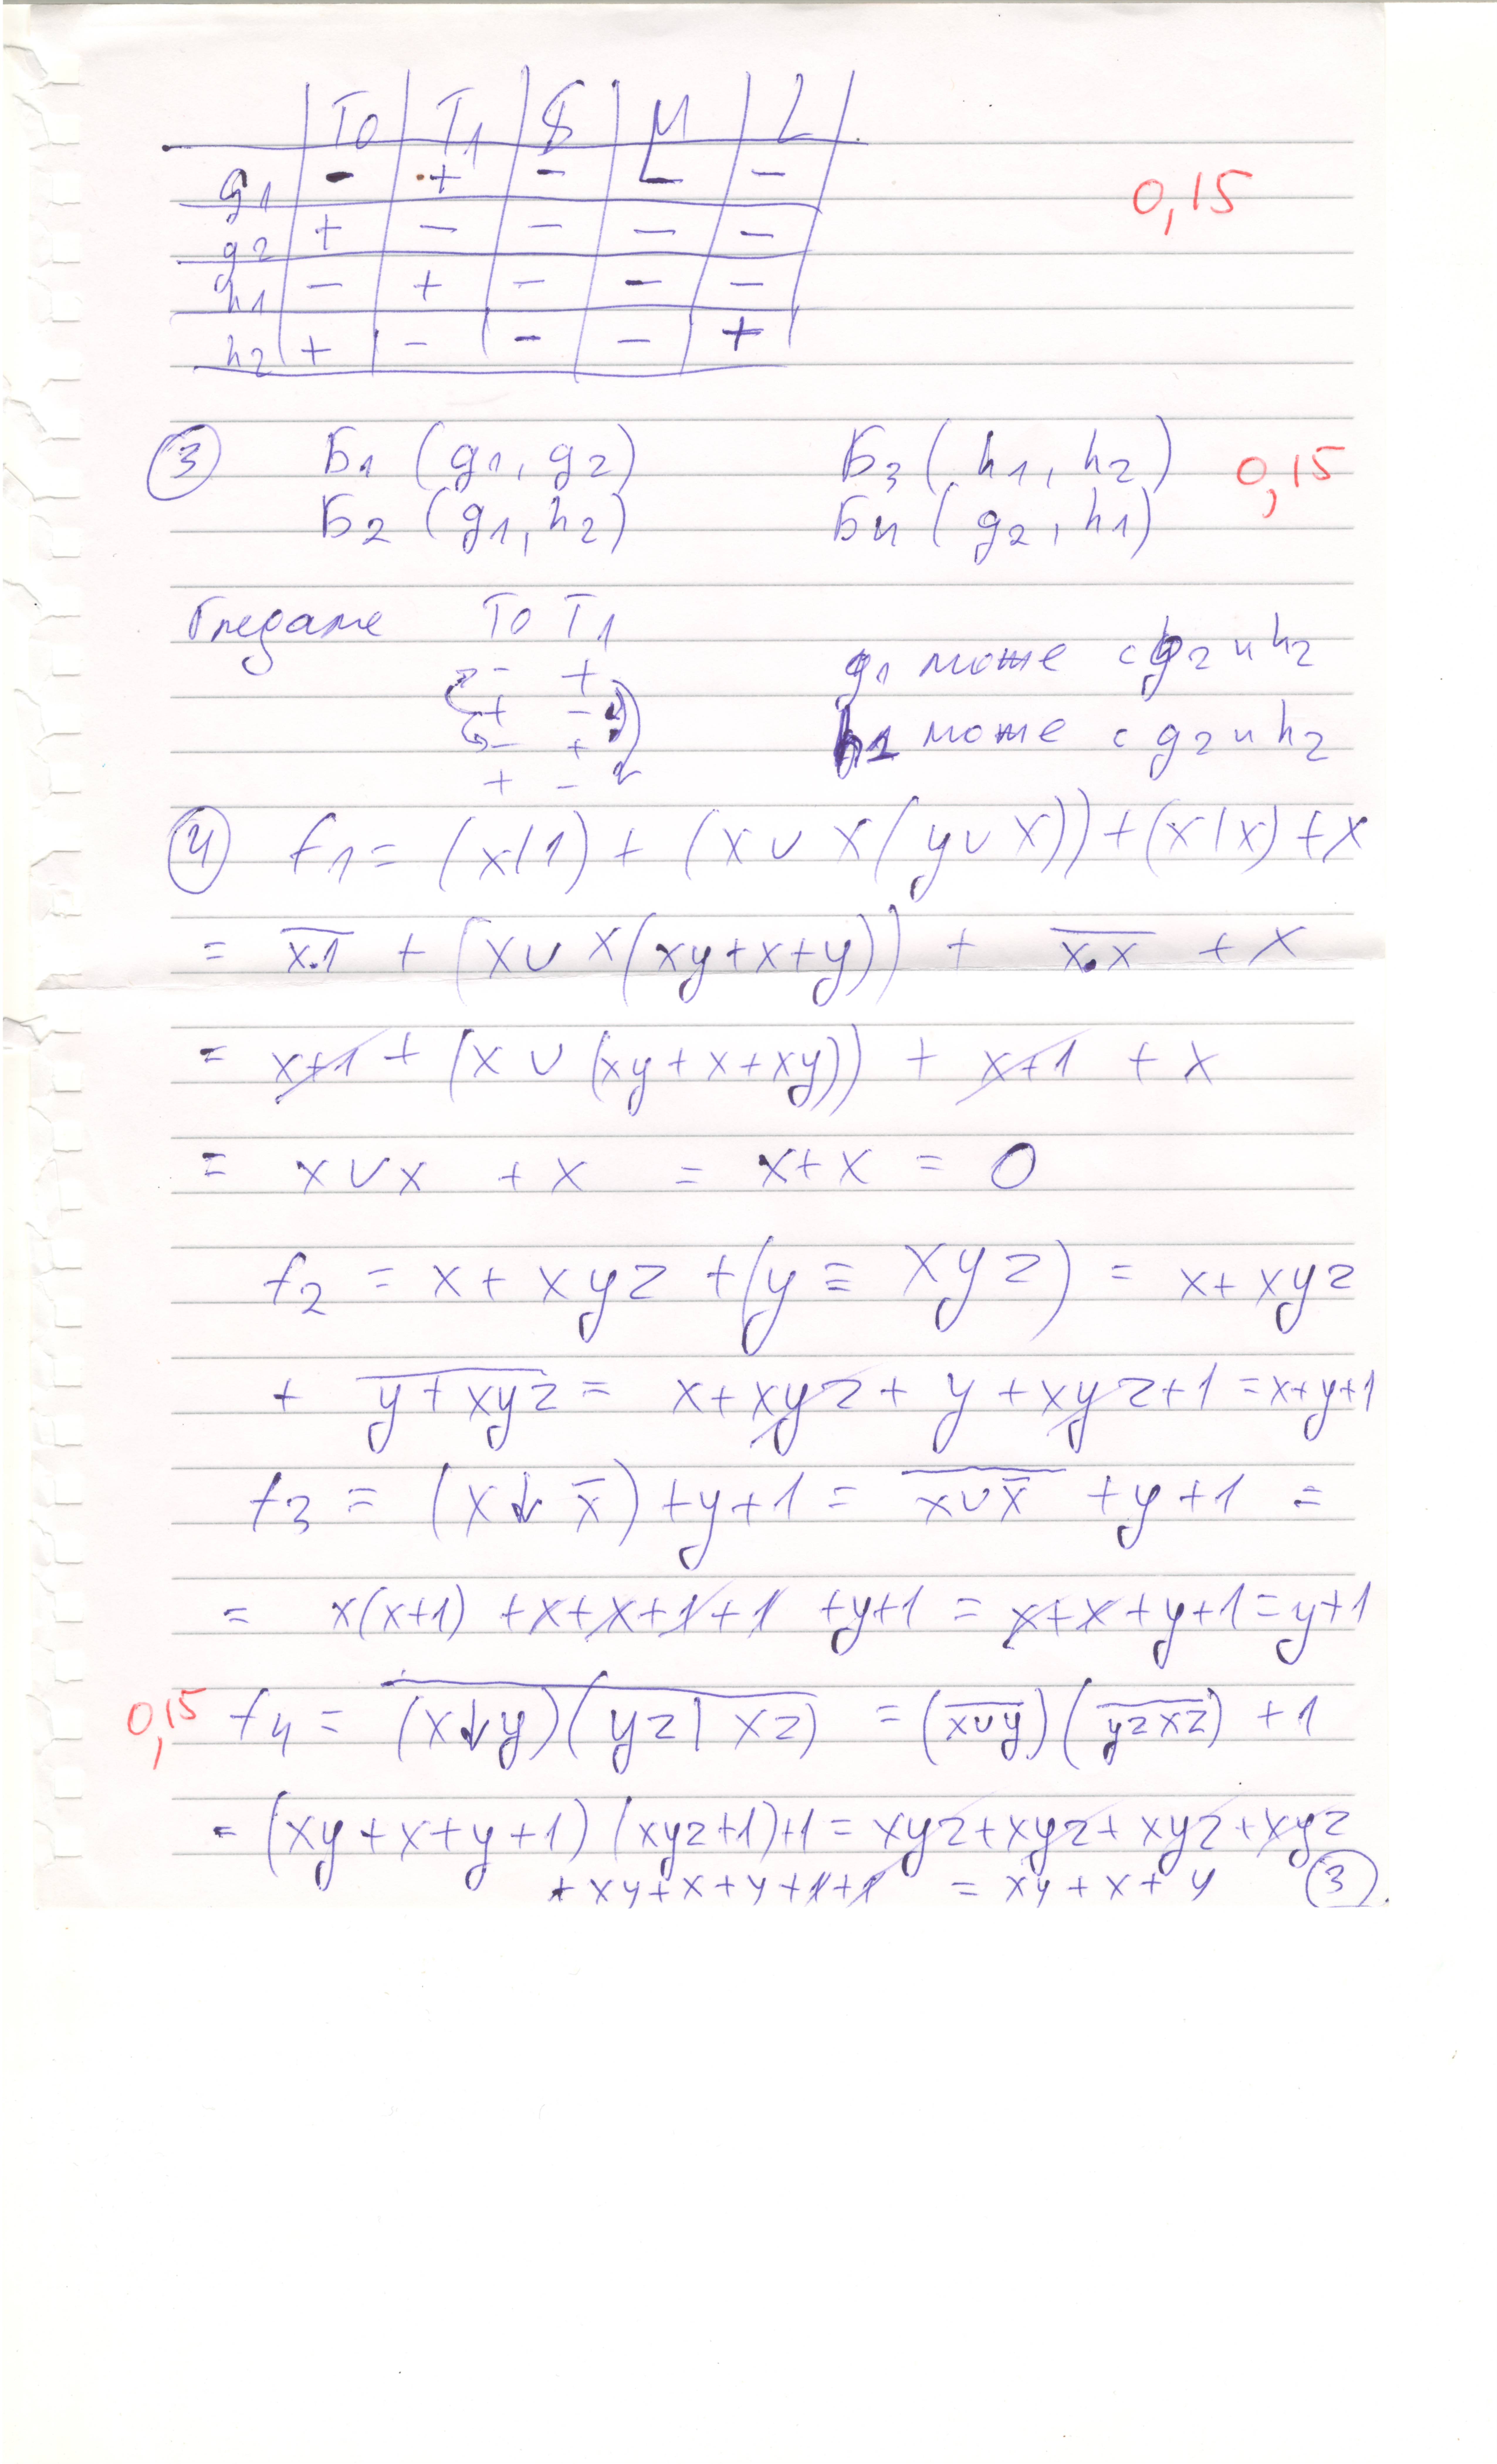 T0 T1 S M L
g1 - + - - - 0,15
g2 + - - - -
h1 - + - - -
h2 + - - - +
③ Б1 (g1, g2) Б3 (h1, h2) 0,15
Б2 (g1, h2) Б4 (g2, h1)
Гледаме T0 T1
- + g1 може с g2 и h2
+ -
- + h1 може с g2 и h2
+ -
④ f1 = (x|1) + (x ∨ x(y ∨ x)) + (x|x) + x
= \overline{x.1} + (x ∨ x(xy+x+y)) + \overline{x.x} + x
= x+1 + (x ∨ (xy+x+xy)) + x+1 + x
= x∨x + x = x+x = 0
f2 = x + xyz + (y ≡ xyz) = x + xyz
+ \overline{y + xyz} = x + xyz + y + xyz + 1 = x+y+1
f3 = (x ↓ x̄) + y + 1 = \overline{x ∨ x̄} + y + 1 =
= x(x+1) + x + x + 1 + 1 + y+1 = x+x+y+1 = y+1
0,15 f4 = \overline{(x↓y)(yz | xz)} = (\overline{x∨y})(\overline{yzxz}) + 1
= (xy+x+y+1)(xyz+1)+1 = xyz+xyz+xyz+xyz
+ xy+x+y+1+1 = xy+x+y ③